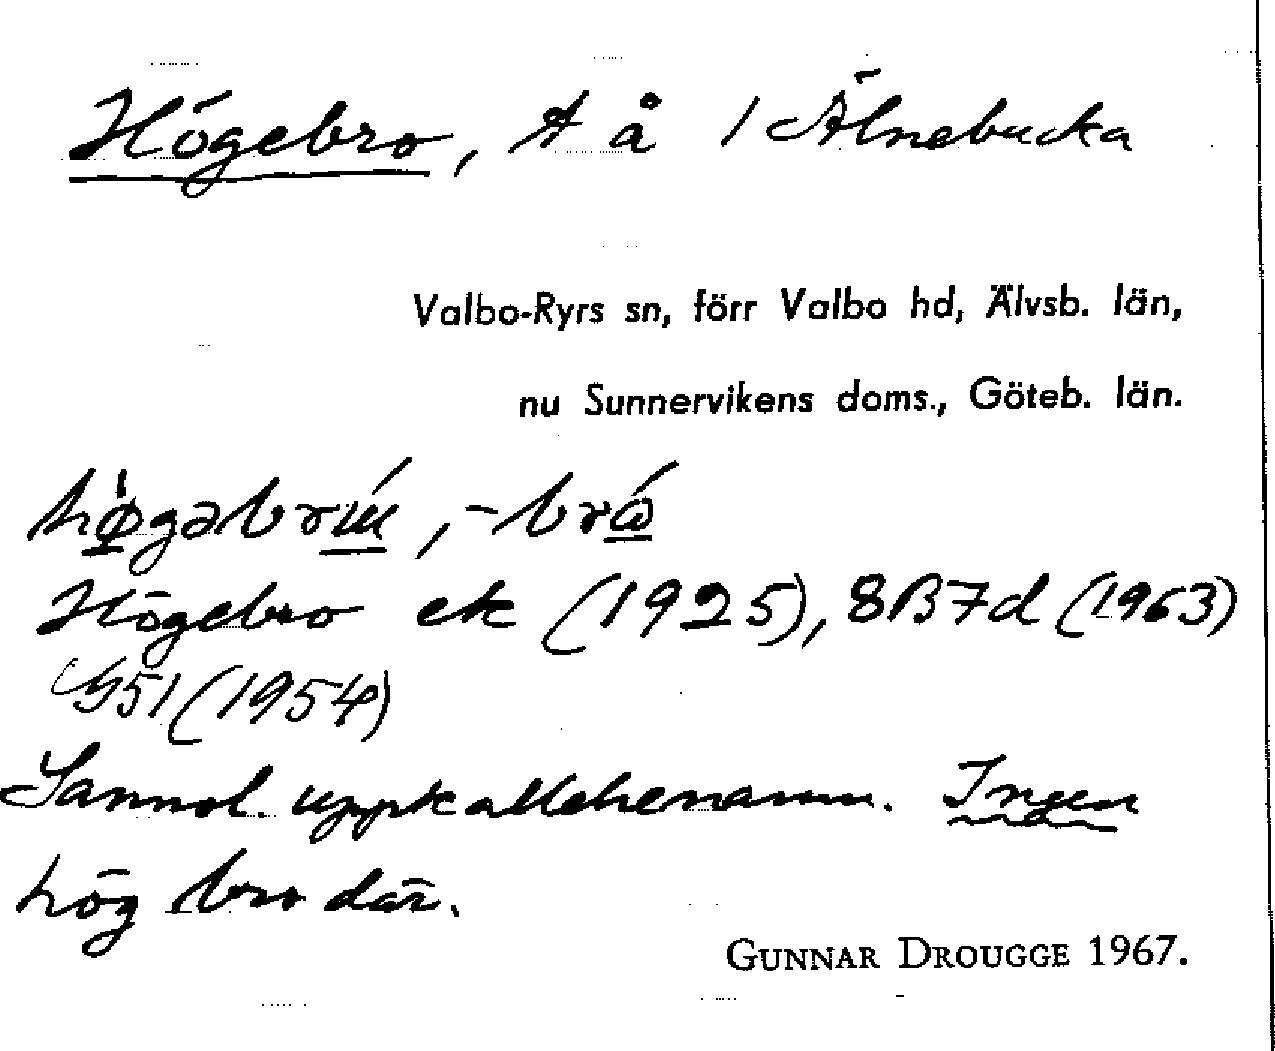 Högebro, t å 1 Älnebacka
Valbo-Ryrs sn, förr Valbo hd, Älvsb. län,
nu Sunnervikens doms., Göteb. län.
-bró
Högebro ek (1925), 8B7d (1963)
G51 (1954)
Sannol. uppkallelsenamn. Ingen
hög bro där.
GUNNAR DROUGGE 1967.